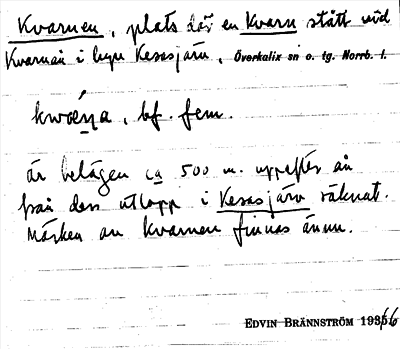 Kvarnen, plats där en kvarn stått vid
Kvarnån i byn Kesasjärv, Överkalix sn o. tg. Norrb. l.
kwæṇa, bf. fem.
är belägen ca 500 m. uppefter ån
från dess utlopp i Kesasjärv räknat.
Märken av kvarnen finnas ännu.
EDVIN BRÄNNSTRÖM 1935/6